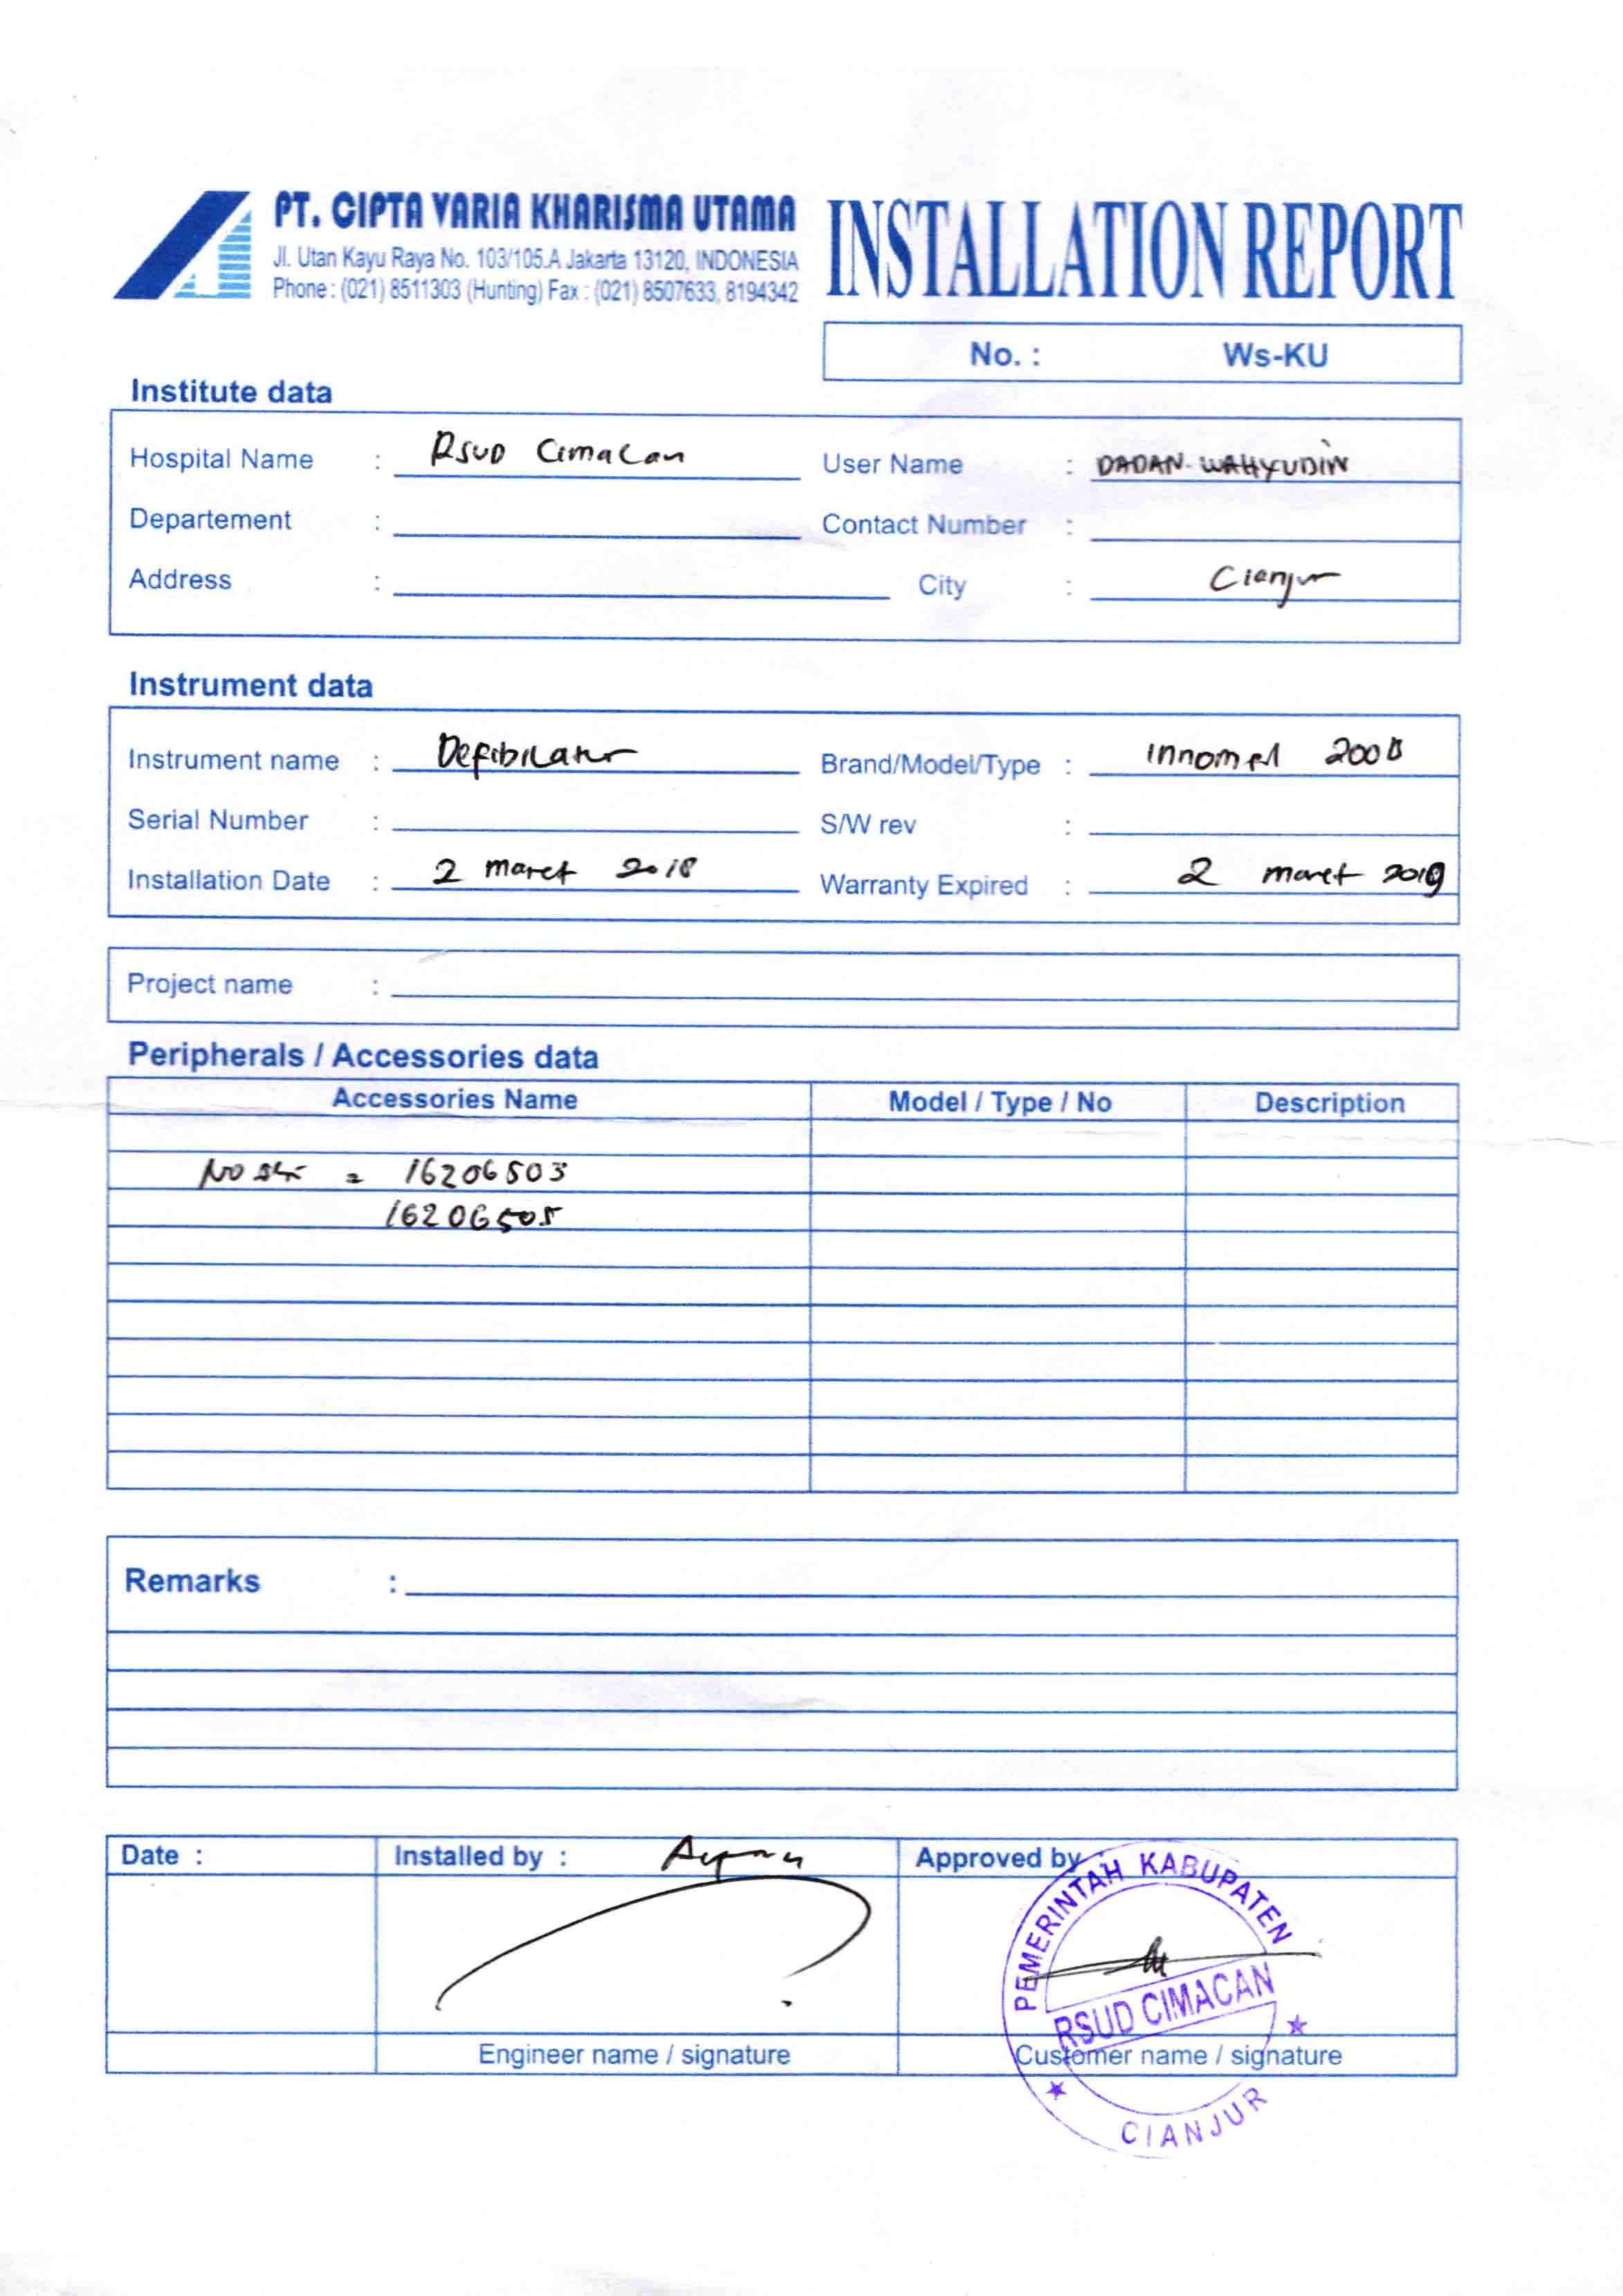 PT. CIPTA VARIA KHARISMA UTAMA
Jl. Utan Kayu Raya No. 103/105.A Jakarta 13120, INDONESIA
Phone : (021) 8511303 (Hunting) Fax : (021) 8507633, 8194342
INSTALLATION REPORT
No. : Ws-KU
Institute data
Hospital Name : RSUD Cimacan User Name : DADAN WAHYUDIN
Departement : Contact Number :
Address : City : Cianjur
Instrument data
Instrument name : Defibilator Brand/Model/Type :
Serial Number : S/W rev :
Installation Date : 2 maret 2018 Warranty Expired : 2 maret 2019
Project name :
Peripherals / Accessories data
Accessories Name Model / Type / No Description
No = 16206503
16206505
Remarks :
Date : Installed by : Approved by
PEMERINTAH KABUPATEN
RSUD CIMACAN
Engineer name / signature Customer name / signature
CIANJUR